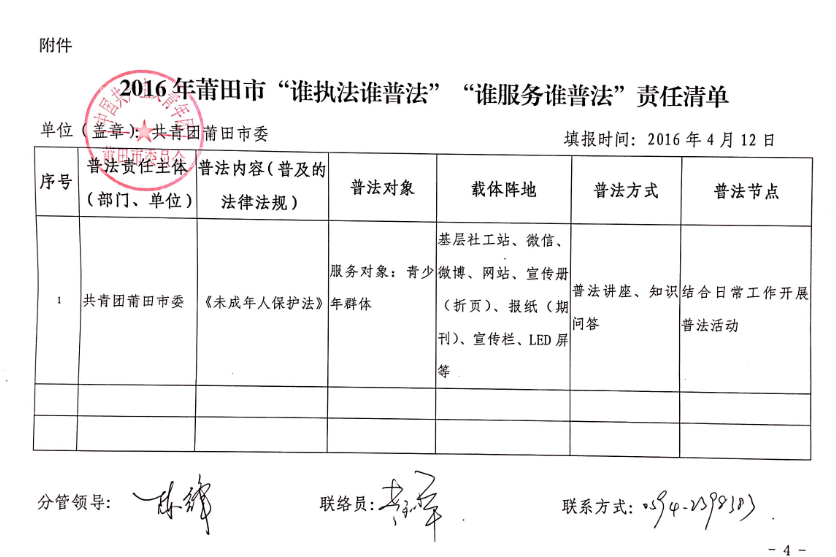 附件
2016年莆田市“谁执法谁普法”“谁服务谁普法”责任清单
单位(盖章):共青团莆田市委
填报时间:2016年4月12日
序号
普法责任主体
(部门、单位)
普法内容(普及的
法律法规)
普法对象
载体阵地
普法方式
普法节点
1
共青团莆田市委
《未成年人保护法》
服务对象:青少
年群体
基层社工站、微信、
微博、网站、宣传册
(折页)、报纸(期
刊)、宣传栏、LED屏
等
普法讲座、知识
问答
结合日常工作开展
普法活动
分管领导:
联络员:
联系方式:0594-2398383
- 4 -